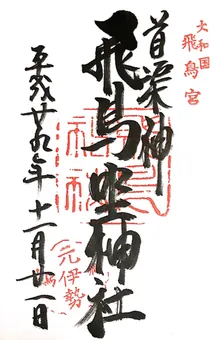 大和国
飛鳥宮
首渠神
飛鳥坐神社
元伊勢
平成廿九年十一月廿一日